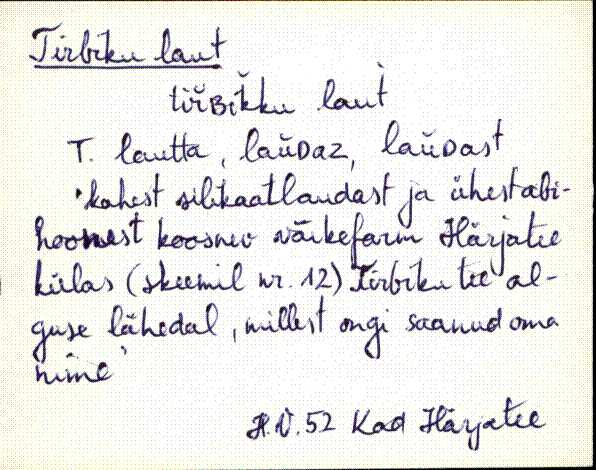 Tirbiku laut
tiřʙikku laut̀
T. lautta, laŭᴅaz, laŭᴅast
'kahest silikaatlaudast ja ühest abi-
hoonest koosnev väikefarm Härjatee
külas (skeemil nr. 12) Tirbiku tee al-
guse lähedal, millest ongi saanud oma
nime'
H.V. 52 Kad Härjatee